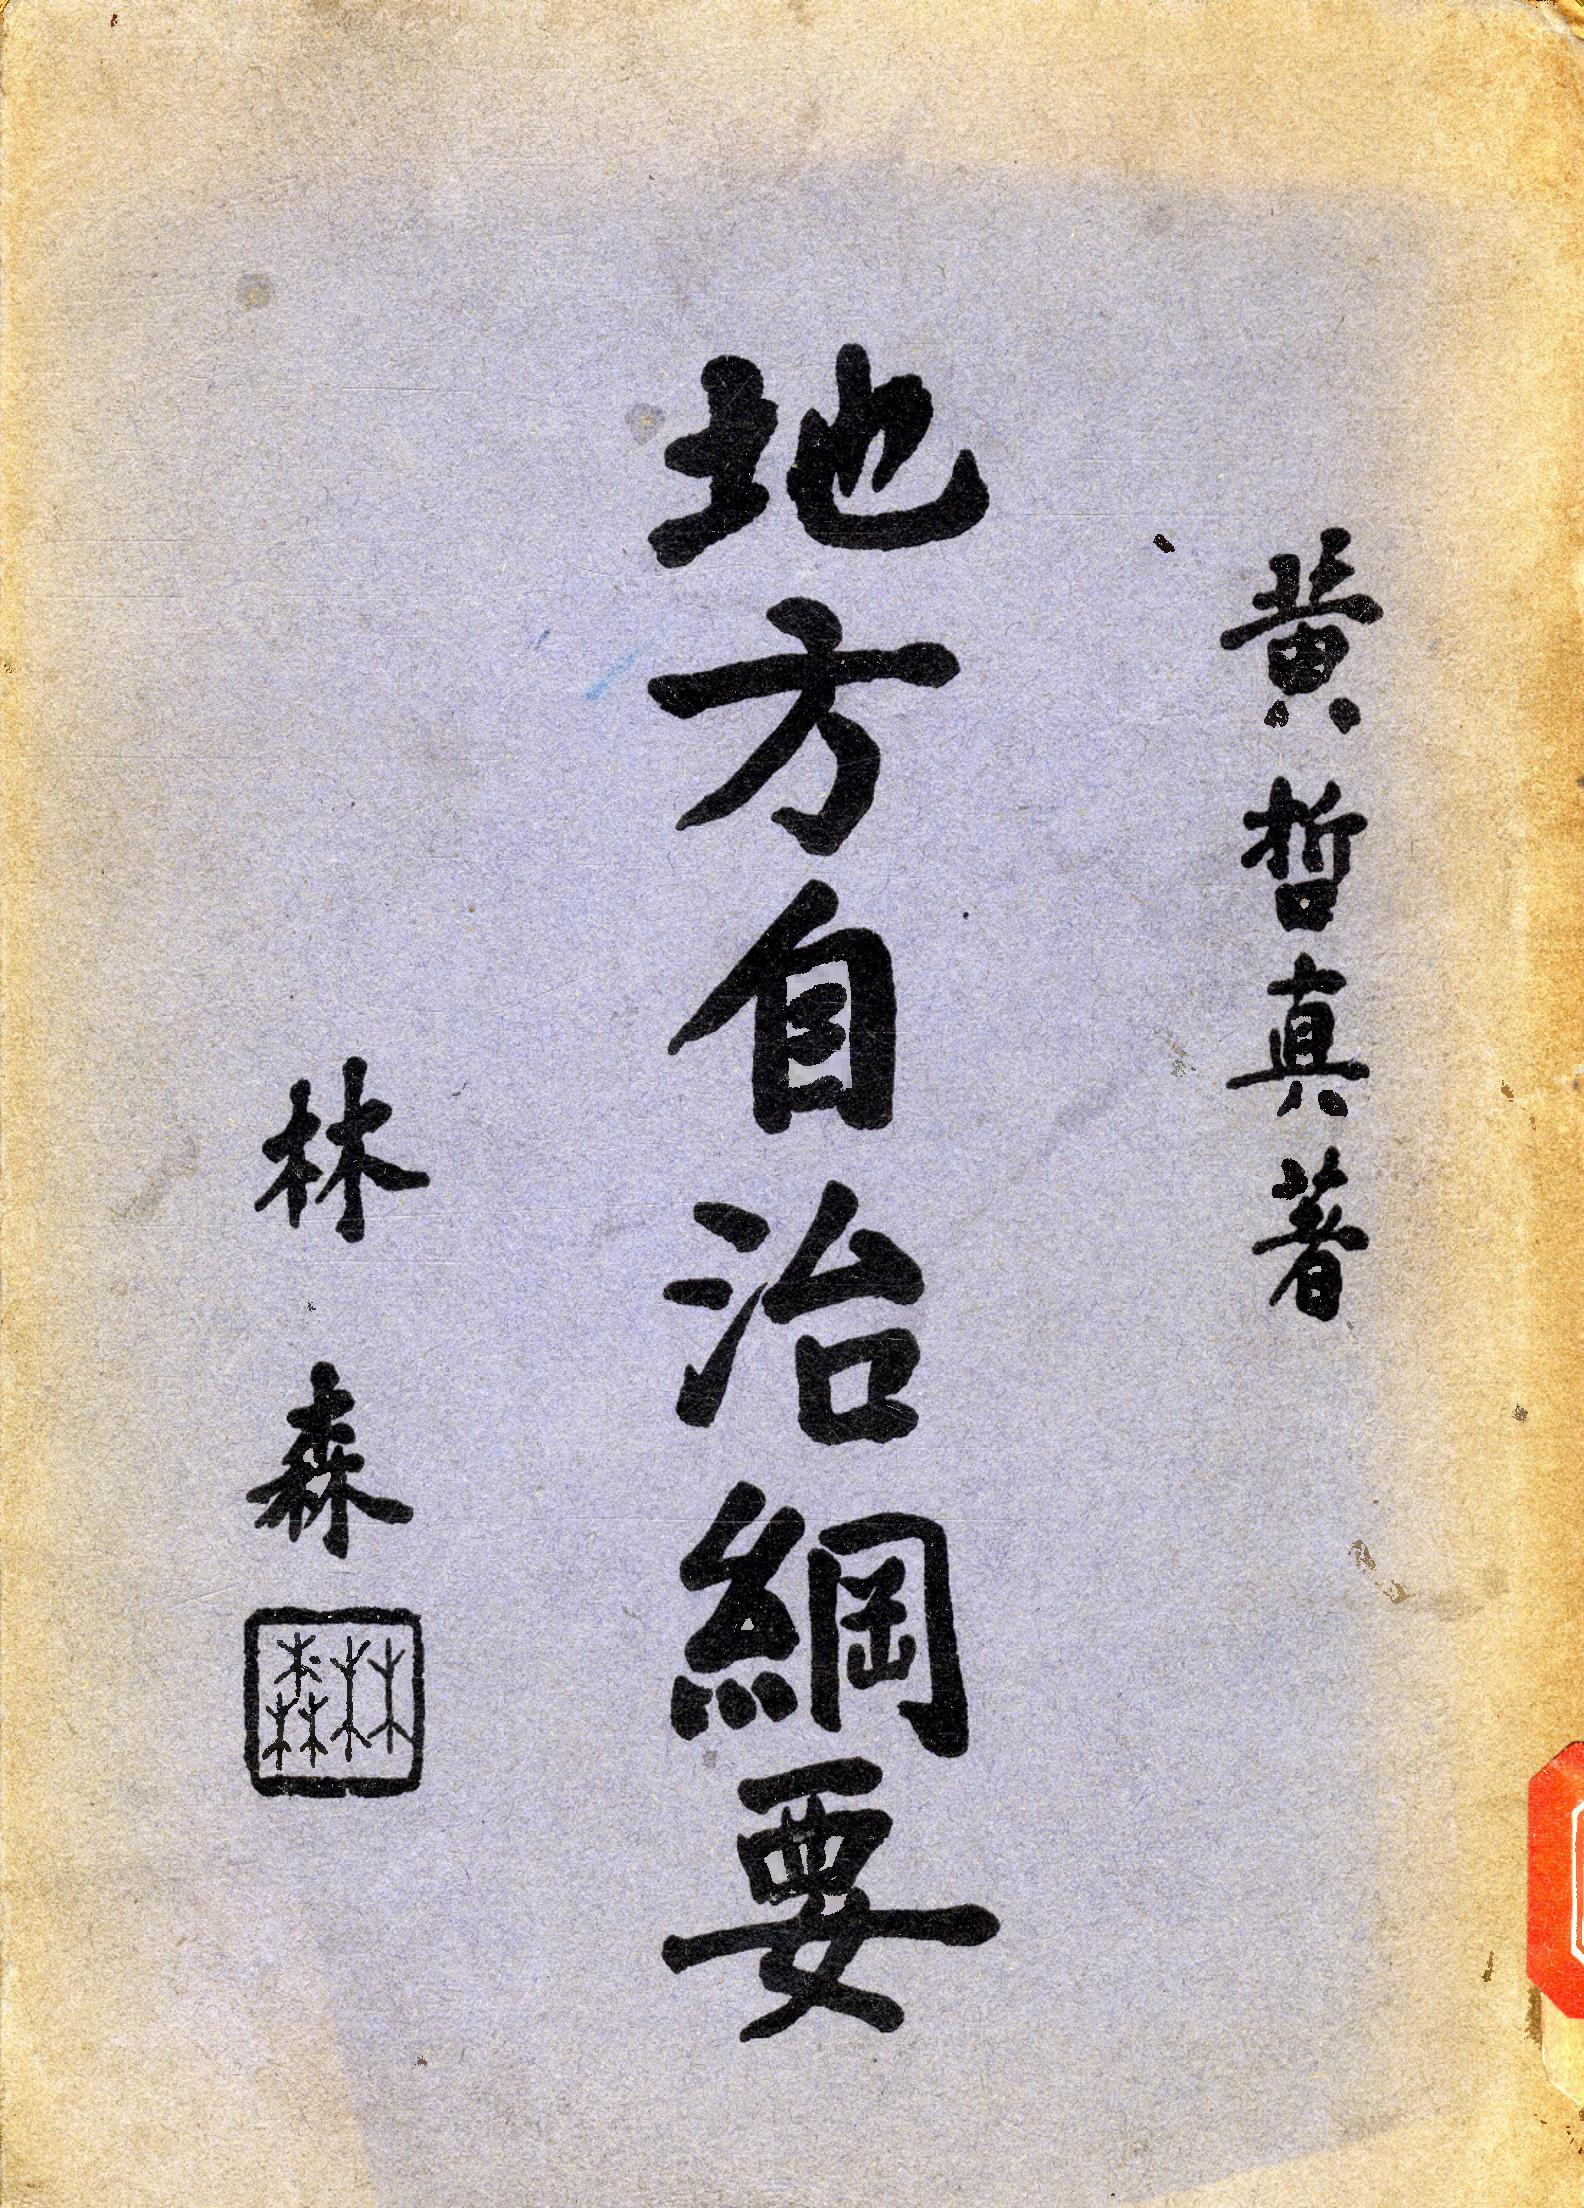 黃哲真著
地方自治綱要
林森
林森